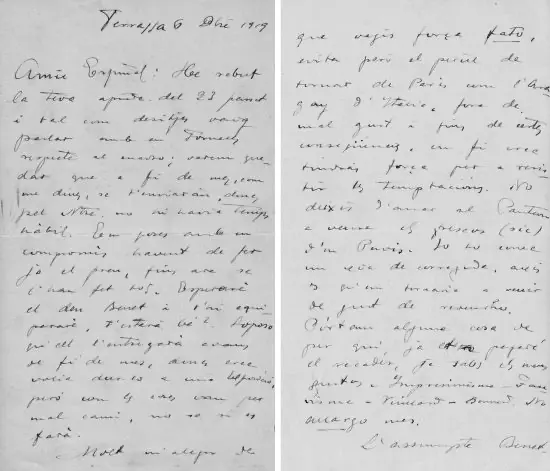 Terrassa 6 Dbre 1919
Amic Espinal: He rebut
la teva apreda. del 23 passat
i tal com desitjes vaig
parlar amb en
respecte al quadro, varem que-
dar que a fi de mes, com
me dius, se t'enviarán, doncs
pel Nbre. no hi havia temps
hábil. Em poses amb un
compromís havent de fer
jo el preu, fins are se
l'han fet tot. Esperaré
el den Benet i l'hi equi-
pararé, t'estará bé?. Soposo
qu'et l'entregará avans
de fi de mes, doncs crec
volia dur-lo a una exposició,
però com les coses van per
mal camí, no se si es
fará.
Molt m'alegro de
que vagis força fató,
evita però el perill de
tornar de París com l'Ara-
gay d'Italia, fora de
mal gust i fins de certes
conseqüencies, en fi crec
tindrás força per a resis-
tir les temptacions. No
deixis d'anar al Panteon
a veure els frescos (sic)
d'en Puvis. Jo ho conec
un xic de corregude, aixís
es qu'em tornaria a venir
de gust de
Pórtam alguna cosa de
per quí, ja et pagaré
el recader, ja sabs els meus
gustos = Impresionisme - Fau-
visme - Vuillard - Bonnard. No
allargo mes.
L'assumpte Benet-